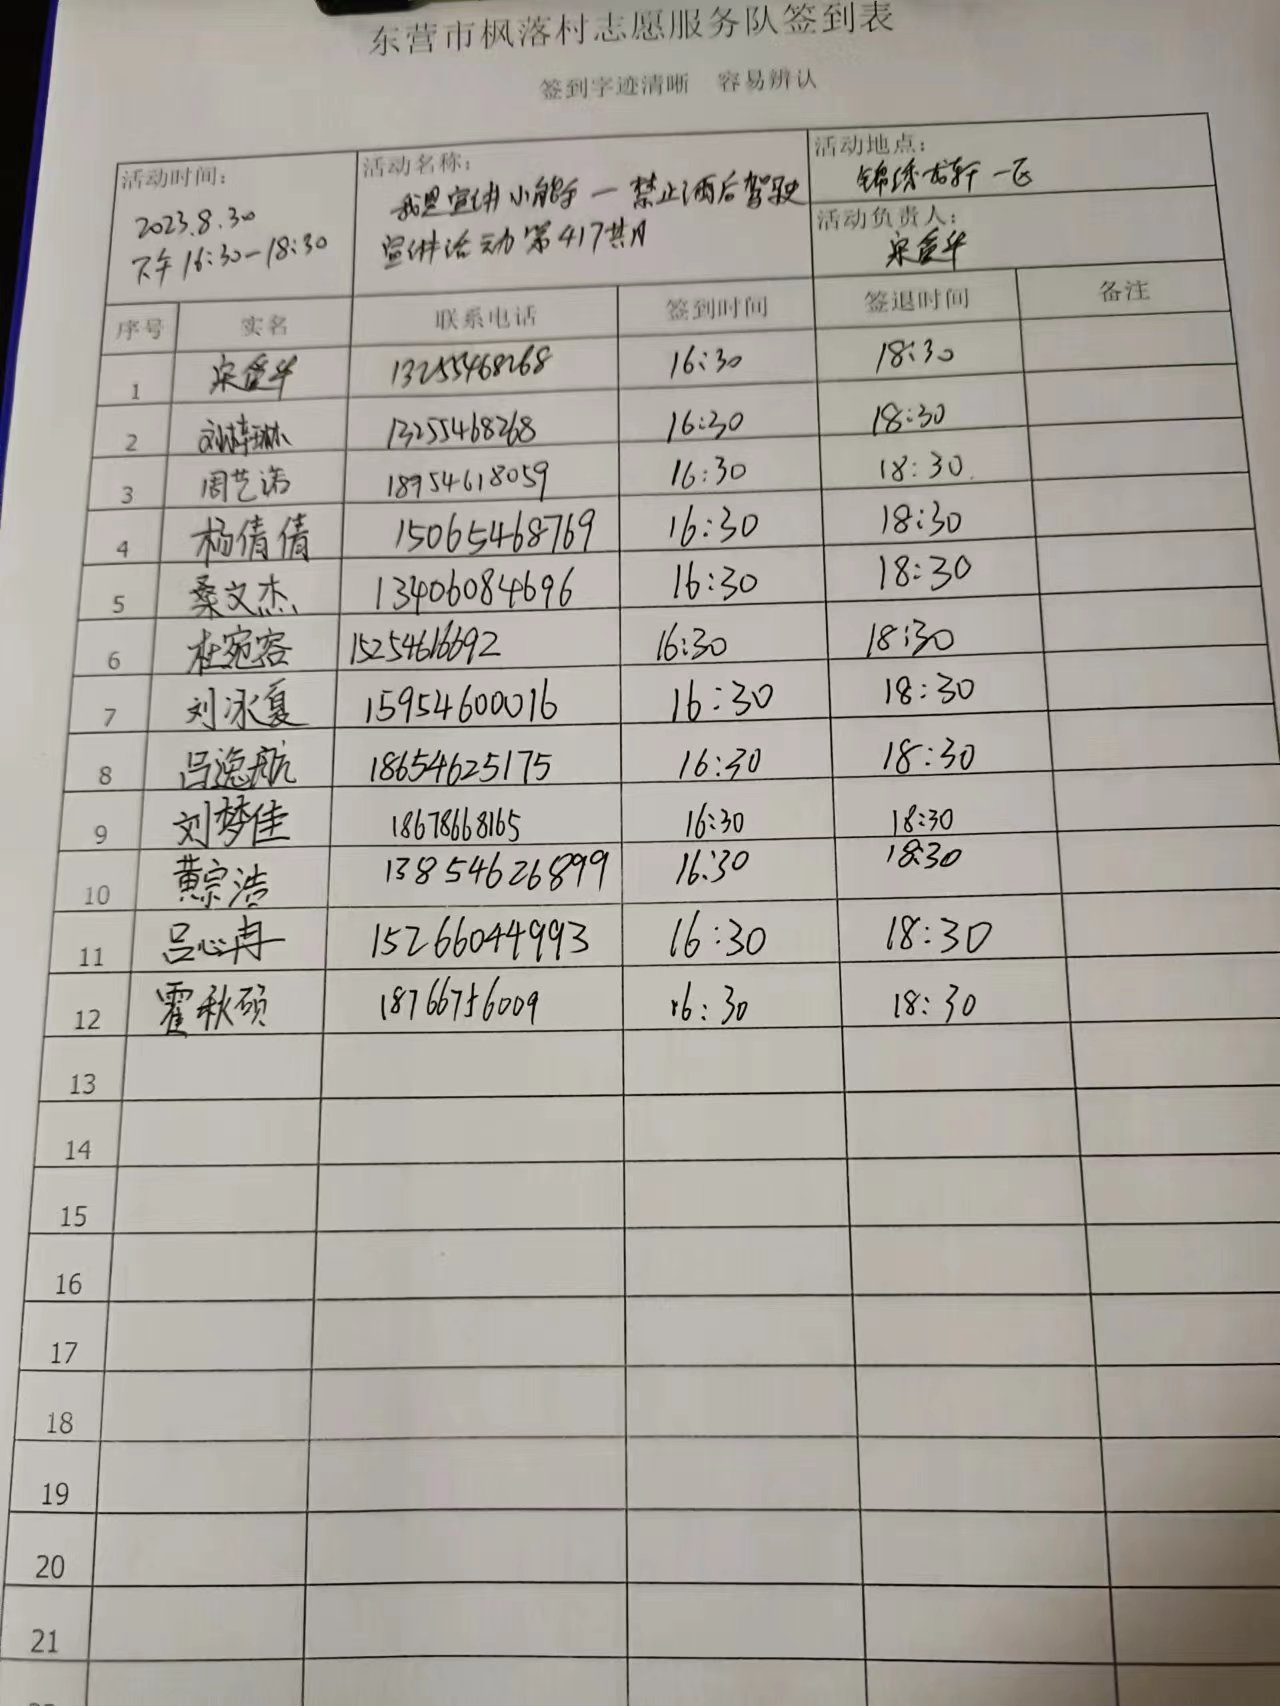 东营市枫落村志愿服务队签到表
签到字迹清晰 容易辨认
活动时间：
2023.8.30
下午16:30-18:30
活动名称：
我是宣讲小能手一禁止酒后驾驶
宣讲活动第417期
活动地点：
锦绣 轩一区
活动负责人：
宋 华
序号 实名 联系电话 签到时间 签退时间 备注
1 宋 华 13255468268 16:30 18:30
2 刘梓琳 13255468268 16:30 18:30
3 周艺诺 18954618059 16:30 18:30
4 杨倩倩 15065468769 16:30 18:30
5 桑文杰 13406084696 16:30 18:30
6 杜宛容 15254616692 16:30 18:30
7 刘泳夏 15954600016 16:30 18:30
8 吕逸航 18654625175 16:30 18:30
9 刘梦佳 18678668165 16:30 18:30
10 黄宗浩 13854626899 16:30 18:30
11 吕心冉 15266044993 16:30 18:30
12 霍秋硕 18766756009 16:30 18:30
13
14
15
16
17
18
19
20
21